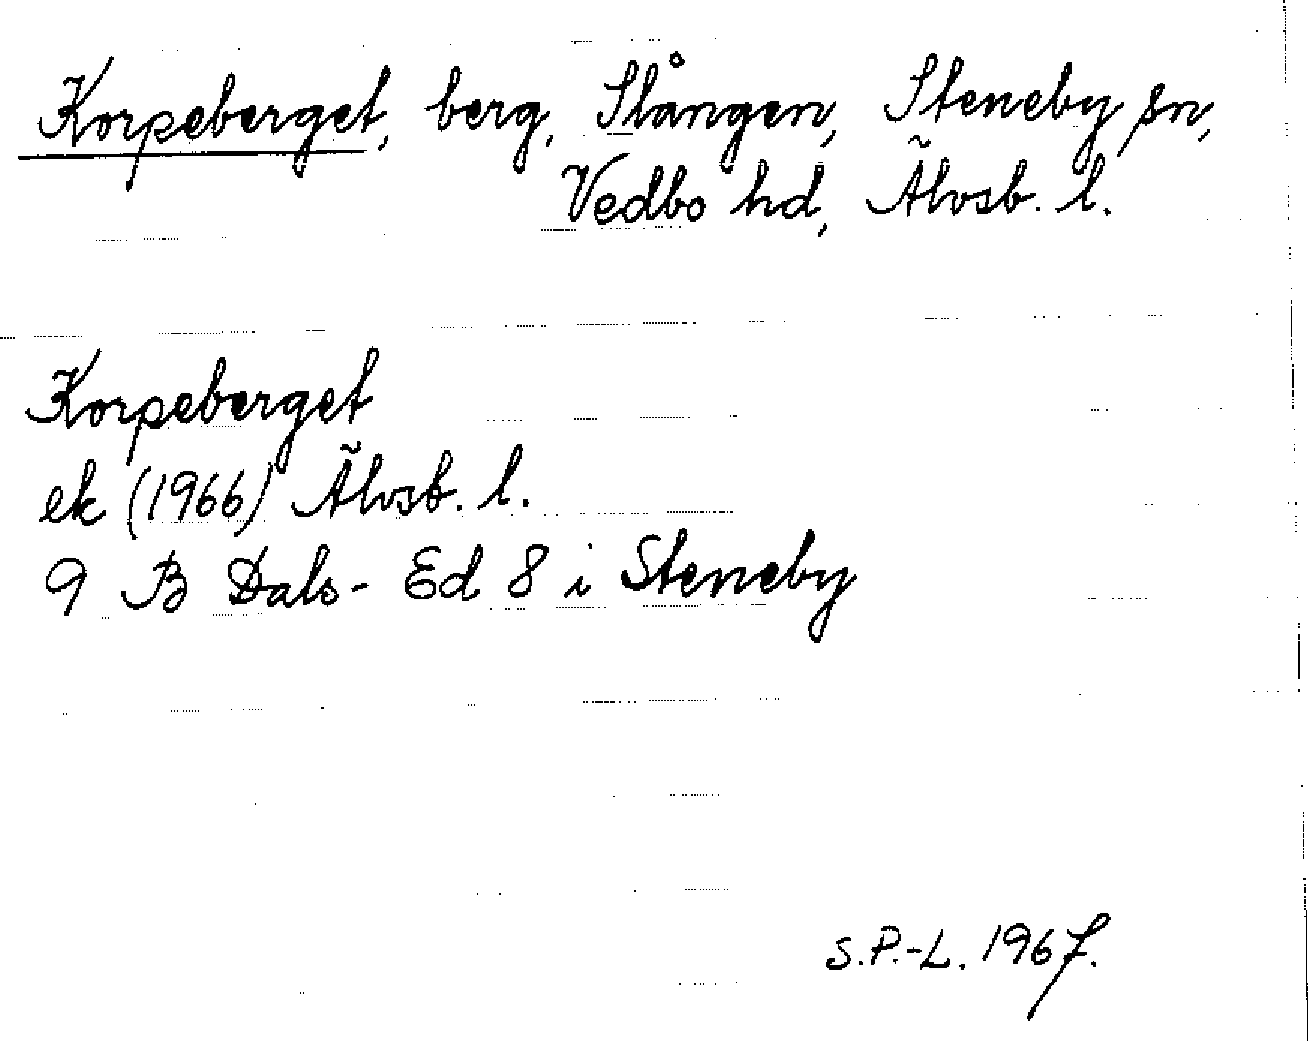 Korpeberget, berg, Slången, Steneby sn,
Vedbo hd, Älvsb. l.
Korpeberget
ek (1966) Älvsb. l.
9 B Dals-Ed 8 i Steneby
S.P.-L. 1967.